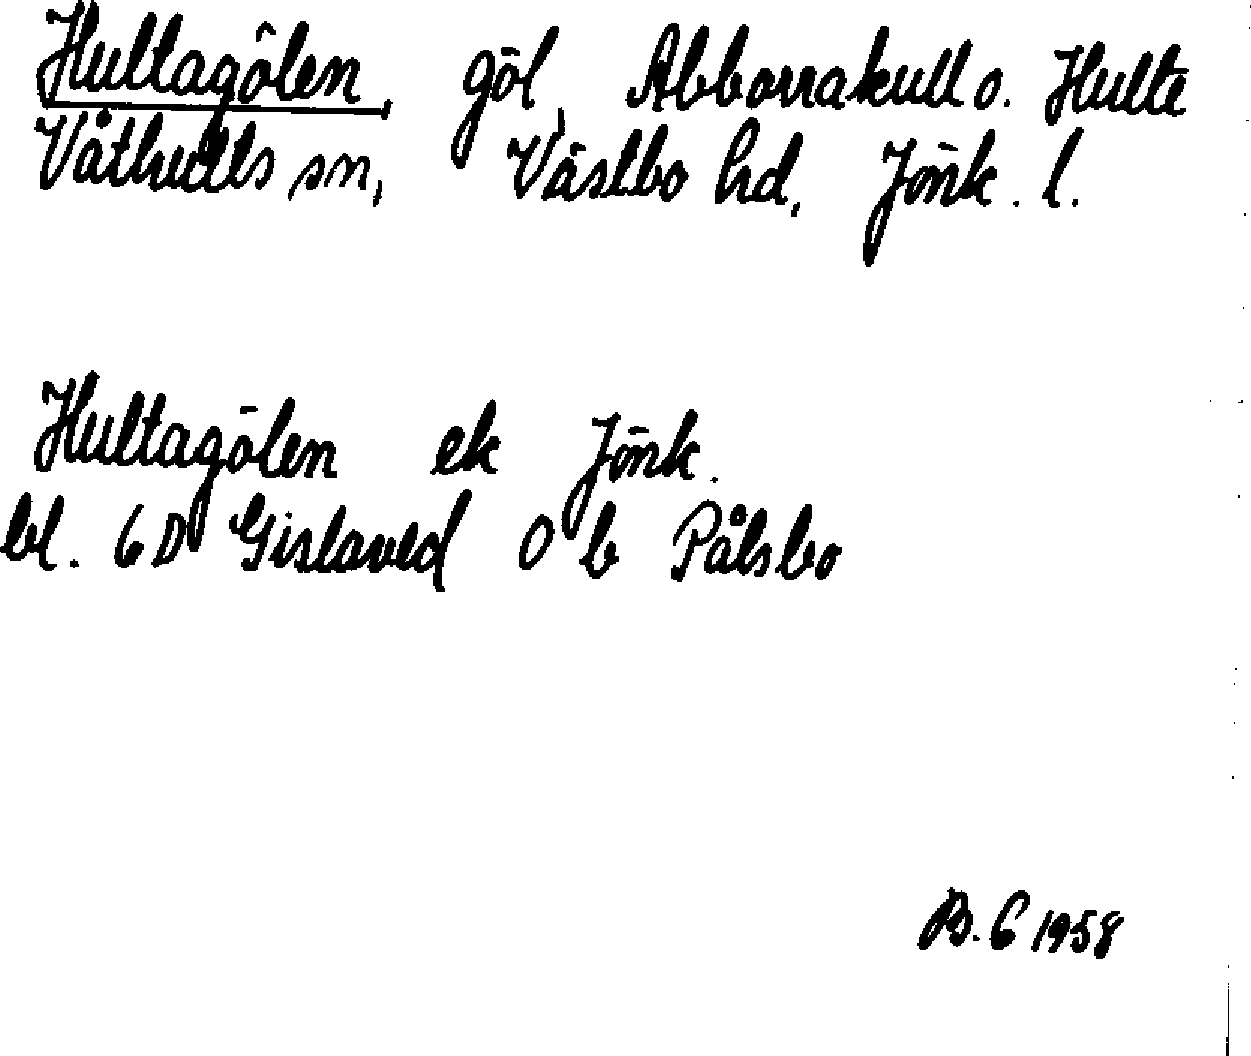 Hultagölen, göl, Abborrakull o. Hulte
Våthults sn, Västbo hd, Jönk. l.
Hultagölen ek Jönk.
bl. 6D Gislaved 0 b Pålsbo
B. G 1958